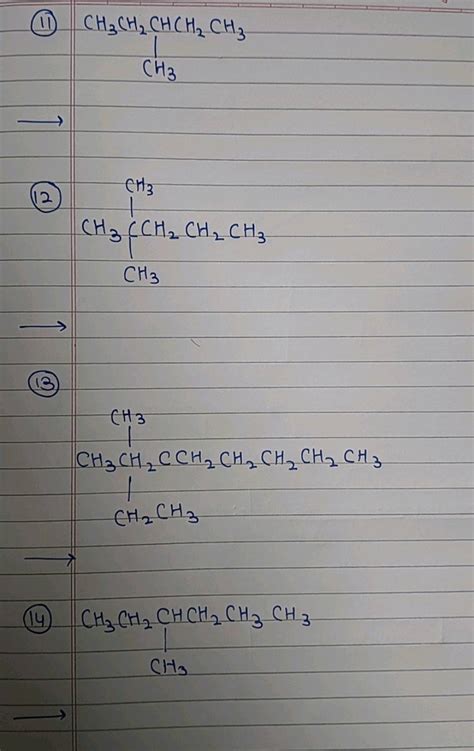 11 CH3CH2CHCH2CH3
CH3
12 CH3
CH3CCH2CH2CH3
CH3
13
CH3
CH3CH2CCH2CH2CH2CH2CH3
CH2CH3
14 CH3CH2CHCH2CH3CH3
CH3